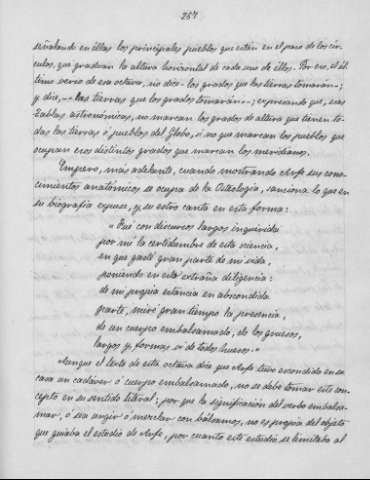 257
señalando en ellas los principales pueblos que estén en el paso de los cír-
culos, que graduan la altura horizontal de cada uno de ellos. Por eso, el úl-
timo verso de esa octava, no dice - los grados que las tierras tomarán -;
y dice, - las tierras que los grados tomarán -; expresando que, esas
tablas astronómicas, no marcan los grados de altura que tienen to-
das las tierras ó pueblos del Globo, ó no que marcan los pueblos que
ocupan esos distintos grados que marcan los meridianos.
Empero, mas adelante, cuando mostrando Arfe sus cono-
cimientos anatómicos se ocupa de la Osteología, sanciona lo que en
su biografía expuse, y su estro canta en esta forma:
"Que con discursos largos inquirida
por mi la certidumbre de esta ciencia,
en que gasté gran parte de mi vida,
poniendo en esto extraña diligencia:
de mi propia estancia en abscondida
parte, miré gran tiempo la presencia,
de un cuerpo embalsamado, de los gruesos,
largos y formas ví de todos huesos."
Aunque el texto de esta octava dice que Arfe tuvo escondido en su
casa un cadáver ó cuerpo embalsamado, no se debe tomar este con-
cepto en su sentido literal; por que la significación del verbo embalsa-
mar, ó sea ungir ó mezclar con bálsamos, no es propia del objeto
que guiaba el estudio de Arfe, por cuanto este estudio se limitaba al